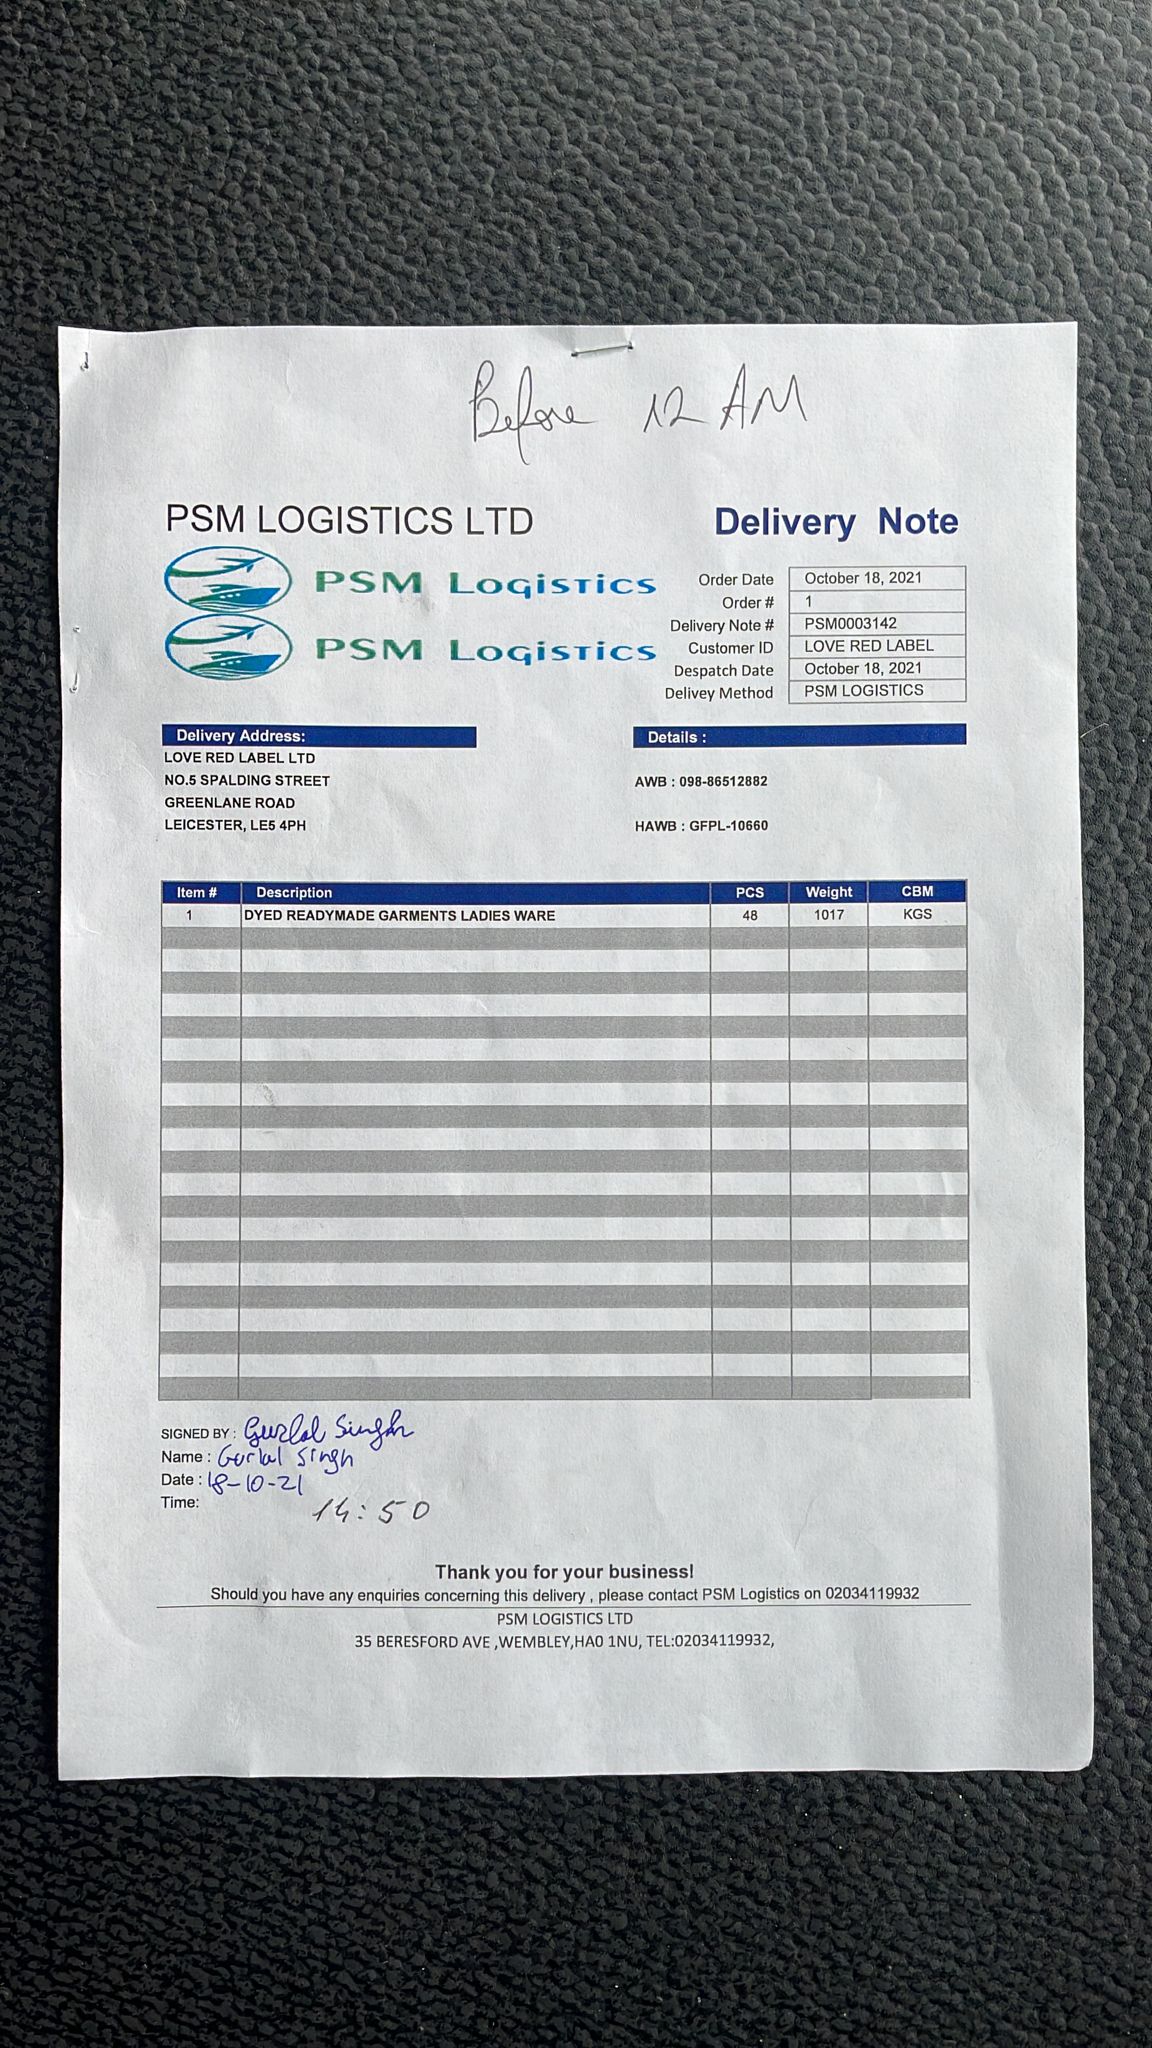 Before 12 AM
PSM LOGISTICS LTD
Delivery Note
PSM Logistics
PSM Logistics
Order Date October 18, 2021
Order # 1
Delivery Note # PSM0003142
Customer ID LOVE RED LABEL
Despatch Date October 18, 2021
Delivey Method PSM LOGISTICS
Delivery Address:
LOVE RED LABEL LTD
NO.5 SPALDING STREET
GREENLANE ROAD
LEICESTER, LE5 4PH
Details :
AWB : 098-86512882
HAWB : GFPL-10660
Item # Description PCS Weight CBM
1 DYED READYMADE GARMENTS LADIES WARE 48 1017 KGS
SIGNED BY : Gurlal Singh
Name : Gurlal Singh
Date : 18-10-21
Time: 14:50
Thank you for your business!
Should you have any enquiries concerning this delivery , please contact PSM Logistics on 02034119932
PSM LOGISTICS LTD
35 BERESFORD AVE ,WEMBLEY,HA0 1NU, TEL:02034119932,